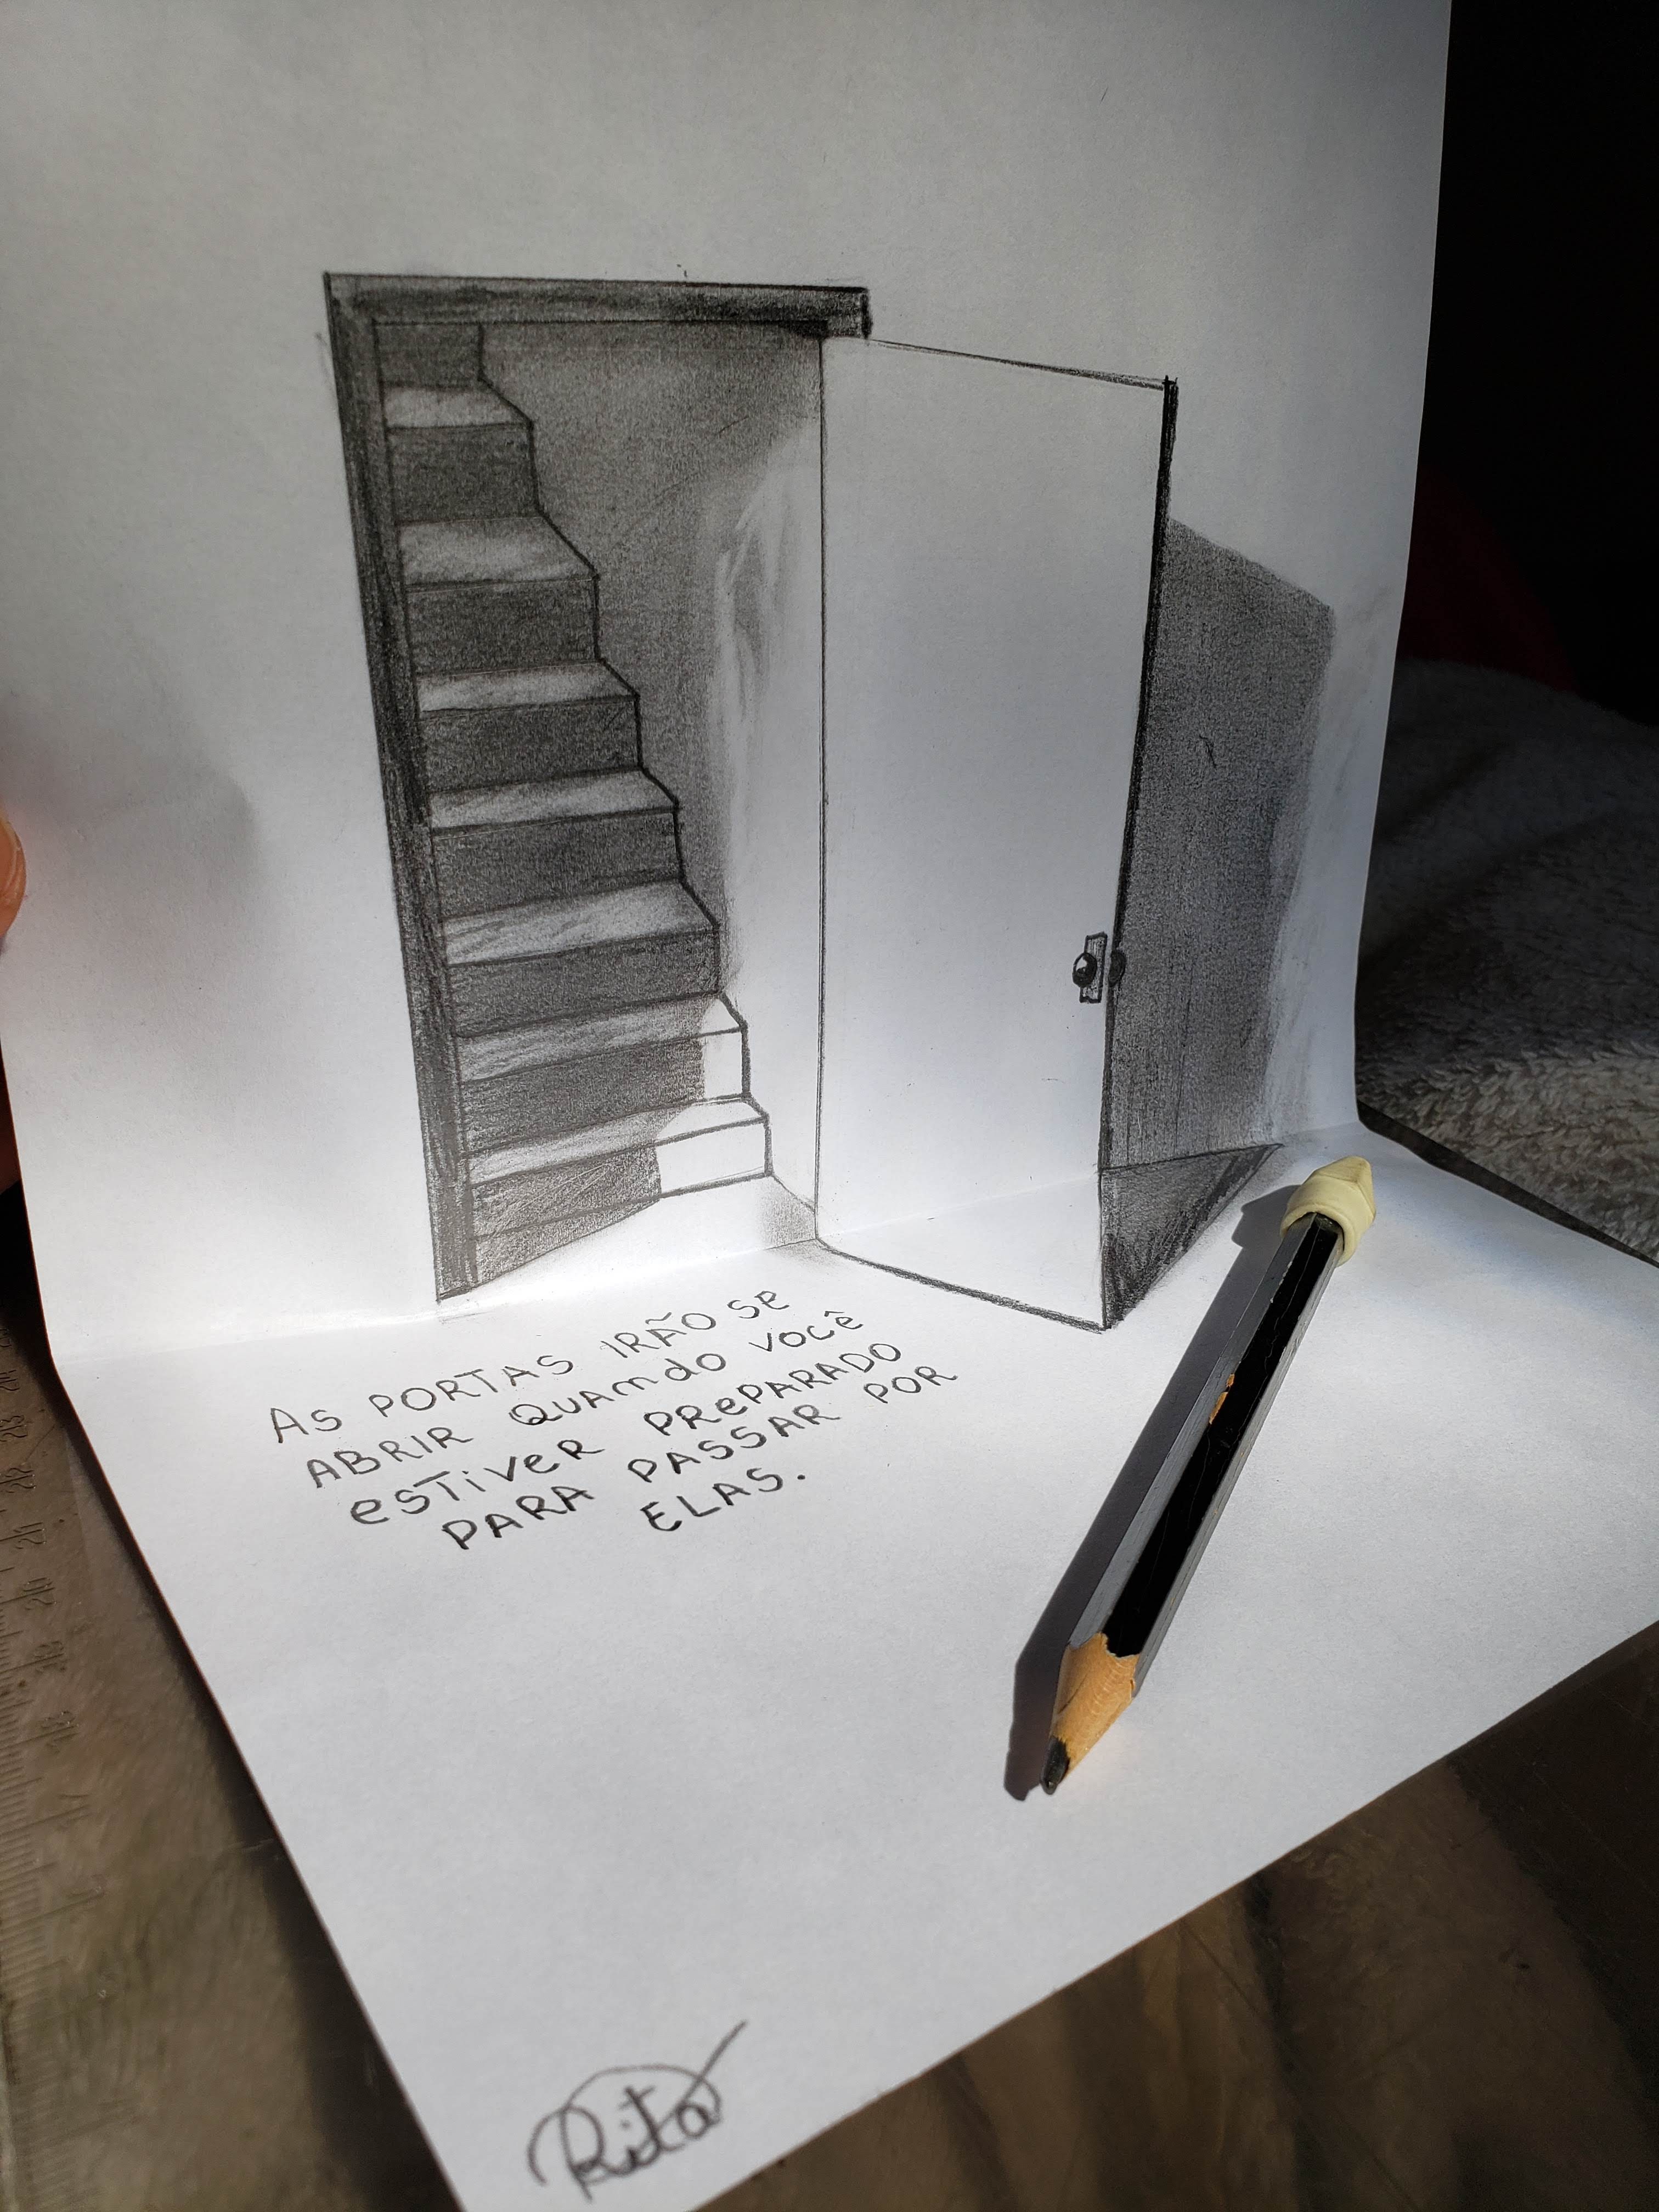 AS PORTAS IRÃO SE
ABRIR QUANDO VOCÊ
ESTIVER PREPARADO
PARA PASSAR POR
ELAS.
Rita